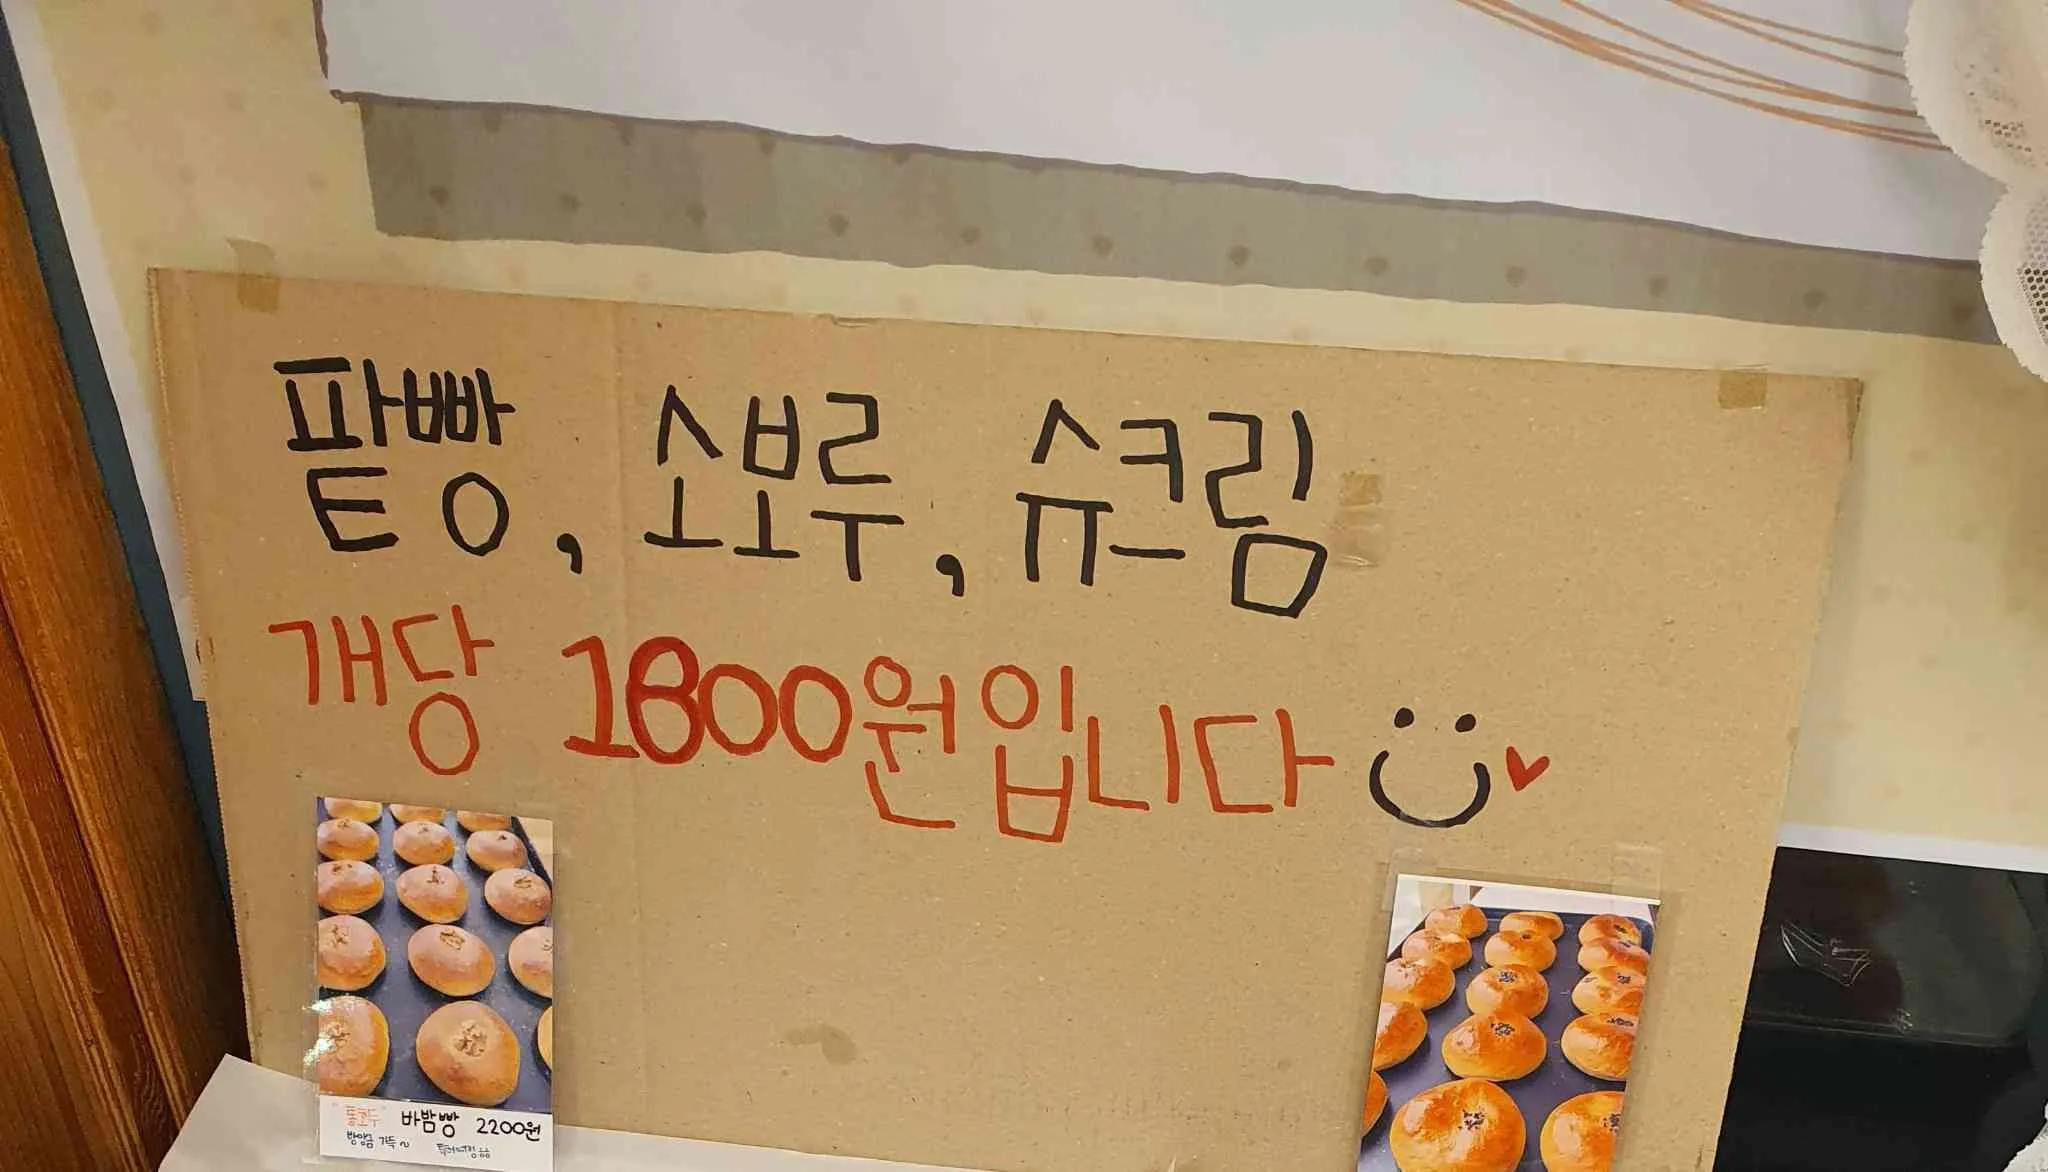 팥빵, 소보루, 슈크림
개당 1800원입니다
"통호두" 바밤빵 2200원
가득~